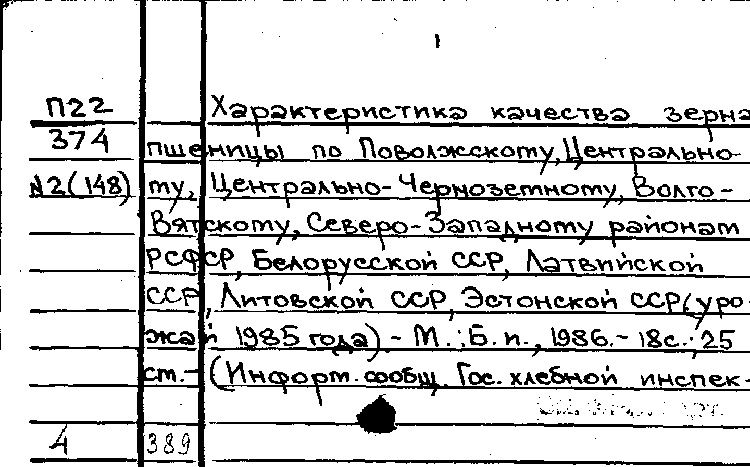 1
П22 Характеристика качества зерна
374 пшеницы по Поволжскому, Центрально-
N2(148) му, Центрально-Черноземному, Волго-
Вятскому, Северо-Западному районам
РСФСР, Белорусской ССР, Латвийской
ССР, Литовской ССР, Эстонской ССР (уро-
жай 1985 года). - М.: Б.и., 1986. - 18с.; 25
см. - (Информ. сообщ. Гос. хлебной инспек-
4 389